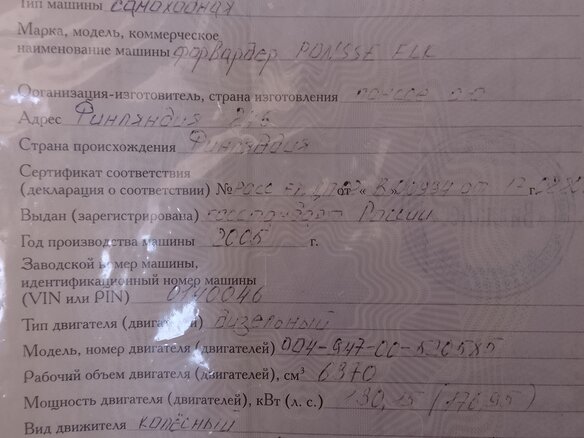 Тип машины самоходная
Марка, модель, коммерческое
наименование машины форвардер PONSSE ELK
Организация-изготовитель, страна изготовления
Адрес Финляндия
Страна происхождения Финляндия
Сертификат соответствия
(декларация о соответствии) № РОСС от «
Выдан (зарегистрирован) Госстандарт России
Год производства машины 2005 г.
Заводской номер машины,
идентификационный номер машины
(VIN или PIN) 0140046
Тип двигателя (двигателей) дизельный
Модель, номер двигателя (двигателей) 904-947-00-590585
Рабочий объем двигателя (двигателей), см³ 6370
Мощность двигателя (двигателей), кВт (л. с.) 130,15 (176,95)
Вид движителя колёсный